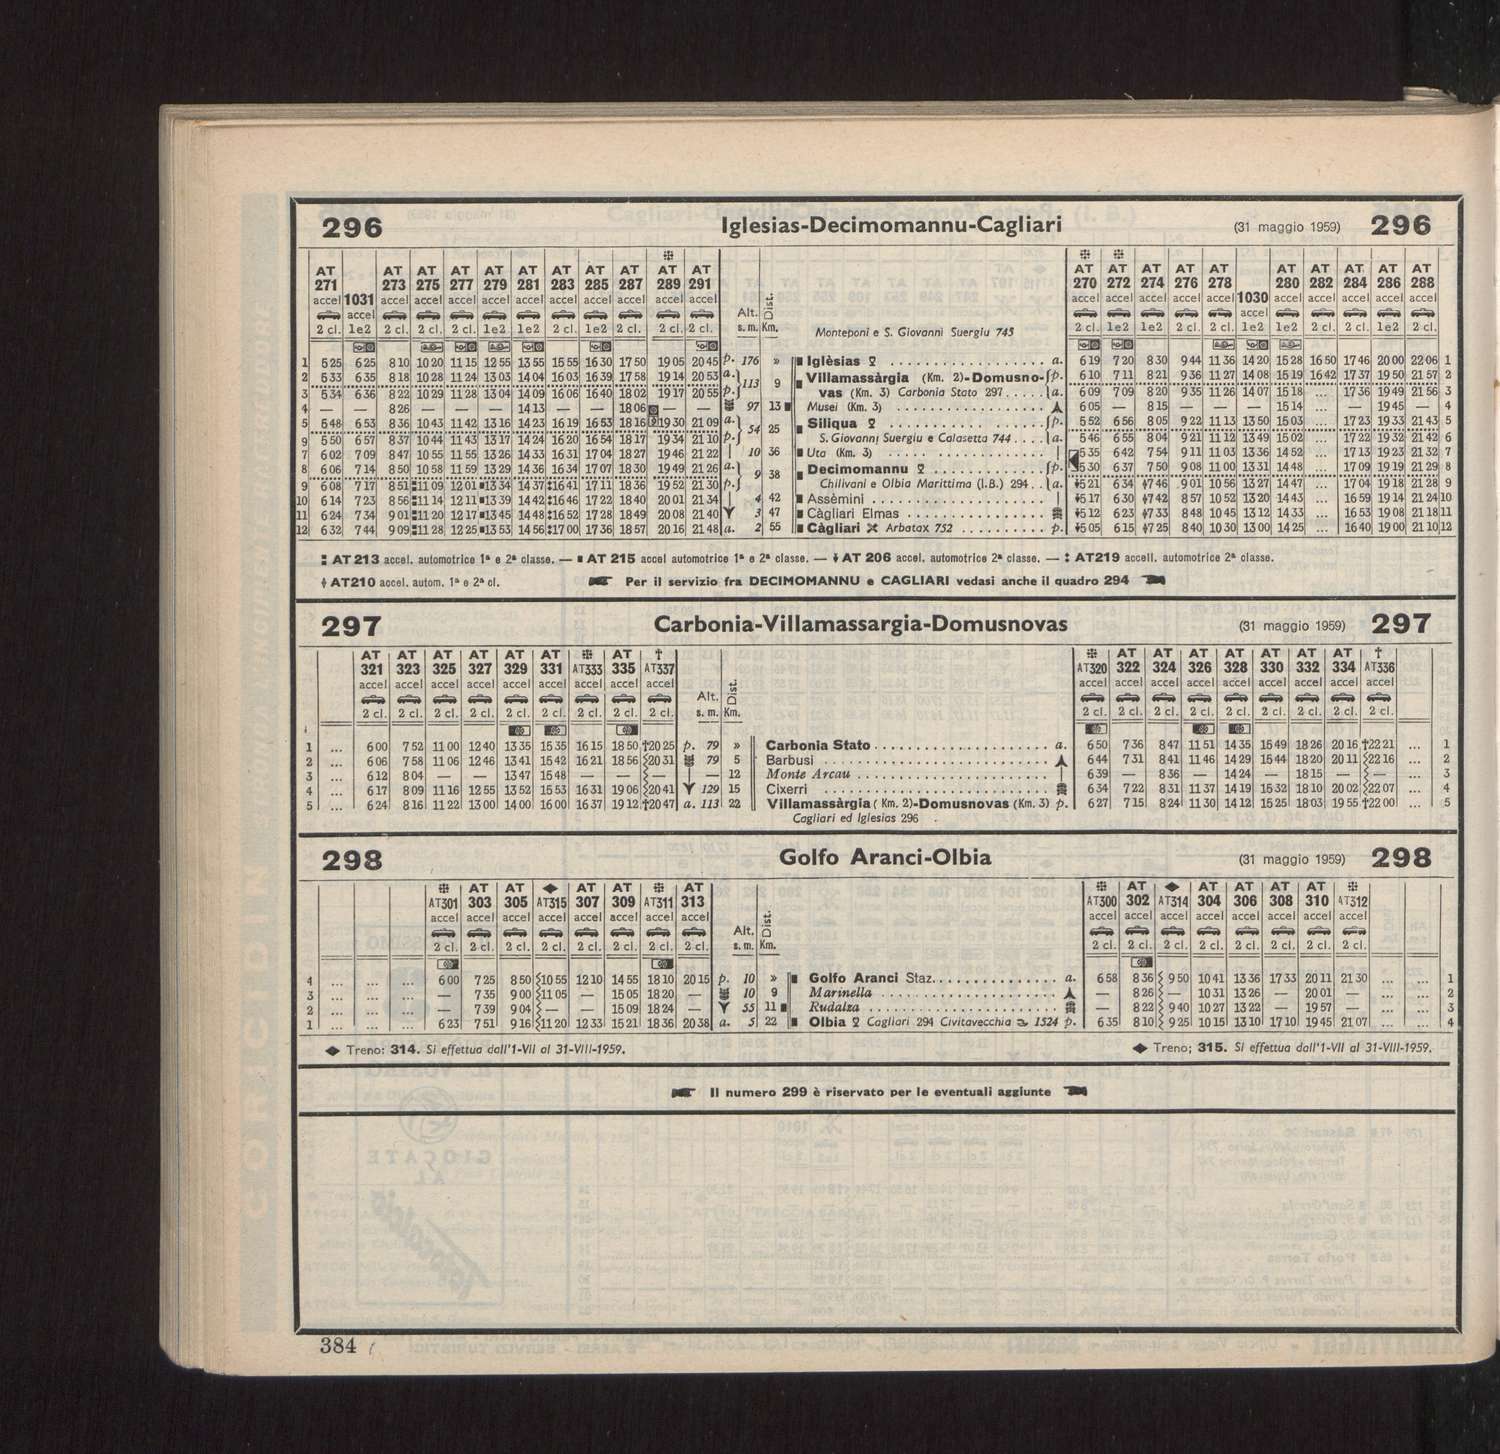 296 Iglesias-Decimomannu-Cagliari (31 maggio 1959) 296
AT 271 1031 AT 273 AT 275 AT 277 AT 279 AT 281 AT 283 AT 285 AT 287 AT 289 AT 291 AT 270 AT 272 AT 274 AT 276 AT 278 1030 AT 280 AT 282 AT 284 AT 286 AT 288
accel accel accel accel accel accel accel accel accel accel accel accel Alt. Dist. accel accel accel accel accel accel accel accel accel accel accel
2 cl. 1e2 2 cl. 2 cl. 2 cl. 1e2 1e2 2 cl. 1e2 2 cl. 2 cl. 2 cl. s. m. Km. Monteponi e S. Giovanni Suergiu 745 2 cl. 1e2 2 cl. 1e2 2 cl. 1e2 1e2 2 cl. 2 cl. 1e2 2 cl.
1 5 25 6 25 8 10 10 20 11 15 12 55 13 55 15 55 16 30 17 50 19 05 20 45 p. 176 » Iglèsias a. 6 19 7 20 8 30 9 44 11 36 14 20 15 28 16 50 17 46 20 00 22 06 1
2 5 33 6 35 8 18 10 28 11 24 13 03 14 04 16 03 16 39 17 58 19 14 20 53 a. 113 9 Villamassàrgia (Km. 2)-Domusno- p. 6 10 7 11 8 21 9 36 11 27 14 08 15 19 16 42 17 37 19 50 21 57 2
3 5 34 6 36 8 22 10 29 11 28 13 04 14 09 16 06 16 40 18 02 19 17 20 55 p. vas (Km. 3) Carbonia Stato 297 a. 6 09 7 09 8 20 9 35 11 26 14 07 15 18 ... 17 36 19 49 21 56 3
4 — — 8 26 — — — 14 13 — — 18 06 — — 97 13 Musei (Km. 3) 6 05 — 8 15 — — — 15 14 ... — 19 45 — 4
5 5 48 6 53 8 36 10 43 11 42 13 16 14 23 16 19 16 53 18 16 19 30 21 09 a. 54 25 Siliqua p. 5 52 6 56 8 05 9 22 11 13 13 50 15 03 ... 17 23 19 33 21 43 5
9 5 50 6 57 8 37 10 44 11 43 13 17 14 24 16 20 16 54 18 17 19 34 21 10 p. S. Giovanni Suergiu e Calasetta 744 a. 5 46 6 55 8 04 9 21 11 12 13 49 15 02 ... 17 22 19 32 21 42 6
7 6 02 7 09 8 47 10 55 11 55 13 26 14 33 16 31 17 04 18 27 19 46 21 22 10 36 Uta (Km. 3) 5 35 6 42 7 54 9 11 11 03 13 36 14 52 ... 17 13 19 23 21 32 7
8 6 06 7 14 8 50 10 58 11 59 13 29 14 36 16 34 17 07 18 30 19 49 21 26 a. 9 38 Decimomannu p. 5 30 6 37 7 50 9 08 11 00 13 31 14 48 ... 17 09 19 19 21 29 8
9 6 08 7 17 8 51 11 09 12 01 13 34 14 37 16 41 17 11 18 36 19 52 21 30 p. Chilivani e Olbia Marittima (I.B.) 294 a. 5 21 6 34 7 46 9 01 10 56 13 27 14 47 ... 17 04 19 18 21 28 9
10 6 14 7 23 8 56 11 14 12 11 13 39 14 42 16 46 17 22 18 40 20 01 21 34 4 42 Assèmini 5 17 6 30 7 42 8 57 10 52 13 20 14 43 ... 16 59 19 14 21 24 10
11 6 24 7 34 9 01 11 20 12 17 13 45 14 48 16 52 17 28 18 49 20 08 21 40 3 47 Càgliari Elmas 5 12 6 23 7 33 8 48 10 45 13 12 14 33 ... 16 53 19 08 21 18 11
12 6 32 7 44 9 09 11 28 12 25 13 53 14 56 17 00 17 36 18 57 20 16 21 48 a. 2 55 Càgliari Arbatax 752 p. 5 05 6 15 7 25 8 40 10 30 13 00 14 25 ... 16 40 19 00 21 10 12
AT 213 accel. automotrice 1ª e 2ª classe. — AT 215 accel automotrice 1ª e 2ª classe. — AT 206 accel. automotrice 2ª classe. — AT219 accell. automotrice 2ª classe.
AT210 accel. autom. 1ª e 2ª cl. Per il servizio fra DECIMOMANNU e CAGLIARI vedasi anche il quadro 294
297 Carbonia-Villamassargia-Domusnovas (31 maggio 1959) 297
AT 321 AT 323 AT 325 AT 327 AT 329 AT 331 AT333 AT 335 † AT337 AT320 AT 322 AT 324 AT 326 AT 328 AT 330 AT 332 AT 334 † AT336
accel accel accel accel accel accel accel accel accel Alt. Dist. accel accel accel accel accel accel accel accel accel
2 cl. 2 cl. 2 cl. 2 cl. 2 cl. 2 cl. 2 cl. 2 cl. 2 cl. s. m. Km. 2 cl. 2 cl. 2 cl. 2 cl. 2 cl. 2 cl. 2 cl. 2 cl. 2 cl.
1 ... 6 00 7 52 11 00 12 40 13 35 15 35 16 15 18 50 †20 25 p. 79 » Carbonia Stato a. 6 50 7 36 8 47 11 51 14 35 15 49 18 26 20 16 †22 21 ... 1
2 ... 6 06 7 58 11 06 12 46 13 41 15 42 16 21 18 56 20 31 79 5 Barbusi 6 44 7 31 8 41 11 46 14 29 15 44 18 20 20 11 22 16 ... 2
3 ... 6 12 8 04 — — 13 47 15 48 — — — — 12 Monte Arcau 6 39 — 8 36 — 14 24 — 18 15 — — ... 3
4 ... 6 17 8 09 11 16 12 55 13 52 15 53 16 31 19 06 20 41 129 15 Cixerri 6 34 7 22 8 31 11 37 14 19 15 32 18 10 20 02 22 07 ... 4
5 ... 6 24 8 16 11 22 13 00 14 00 16 00 16 37 19 12 †20 47 a. 113 22 Villamassàrgia ( Km. 2)-Domusnovas (Km. 3) p. 6 27 7 15 8 24 11 30 14 12 15 25 18 03 19 55 †22 00 ... 5
Cagliari ed Iglesias 296
298 Golfo Aranci-Olbia (31 maggio 1959) 298
AT301 AT 303 AT 305 AT315 AT 307 AT 309 AT311 AT 313 AT300 AT 302 AT314 AT 304 AT 306 AT 308 AT 310 AT312
accel accel accel accel accel accel accel accel Alt. Dist. accel accel accel accel accel accel accel accel
2 cl. 2 cl. 2 cl. 2 cl. 2 cl. 2 cl. 2 cl. 2 cl. s. m. Km. 2 cl. 2 cl. 2 cl. 2 cl. 2 cl. 2 cl. 2 cl. 2 cl.
4 ... ... ... 6 00 7 25 8 50 10 55 12 10 14 55 18 10 20 15 p. 10 » Golfo Aranci Staz. a. 6 58 8 36 9 50 10 41 13 36 17 33 20 11 21 30 ... ... 1
3 ... ... ... — 7 35 9 00 11 05 — 15 05 18 20 — 10 9 Marinella — 8 26 — 10 31 13 26 — 20 01 — ... ... 2
2 ... ... ... — 7 39 9 04 — — 15 09 18 24 — 55 11 Rudalza — 8 22 9 40 10 27 13 22 — 19 57 — ... ... 3
1 ... ... ... 6 23 7 51 9 16 11 20 12 33 15 21 18 36 20 38 a. 5 22 Olbia Cagliari 294 Civitavecchia 1524 p. 6 35 8 10 9 25 10 15 13 10 17 10 19 45 21 07 ... ... 4
◆ Treno: 314. Si effettua dall'1-VII al 31-VIII-1959. ◆ Treno; 315. Si effettua dall'1-VII al 31-VIII-1959.
Il numero 299 è riservato per le eventuali aggiunte
384